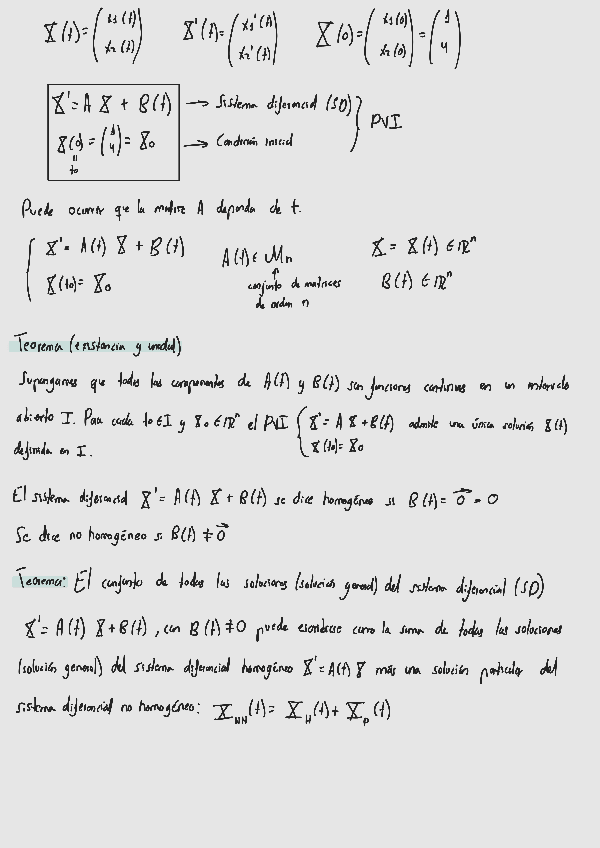 X(t) = (x1(t) x2(t))   X'(t) = (x1'(t) x2'(t))   X(0) = (x1(0) x2(0)) = (1 4)
X' = A X + B(t) → Sistema diferencial (SD) } PVI
X(0) = (1 4) = X0 → Condición inicial
" t0
Puede ocurrir que la matriz A dependa de t.
{ X' = A(t) X + B(t)   A(t) ∈ Mn   X = X(t) ∈ ℝⁿ
X(t0) = X0   ↑ conjunto de matrices de orden n   B(t) ∈ ℝⁿ
Teorema (existencia y unidad)
Supongamos que todas las componentes de A(t) y B(t) son funciones continuas en un intervalo
abierto I. Para cada t0 ∈ I y X0 ∈ ℝⁿ el PVI { X' = A X + B(t) X(t0) = X0 admite una única solución X(t)
definida en I.
El sistema diferencial X' = A(t) X + B(t) se dice homogéneo si B(t) = 0⃗ = 0
Se dice no homogéneo si B(t) ≠ 0⃗
Teorema: El conjunto de todas las soluciones (solución general) del sistema diferencial (SD)
X' = A(t) X + B(t), con B(t) ≠ 0 puede escribirse como la suma de todas las soluciones
(solución general) del sistema diferencial homogéneo X' = A(t) X más una solución particular del
sistema diferencial no homogéneo: X_NH(t) = X_H(t) + X_P(t)